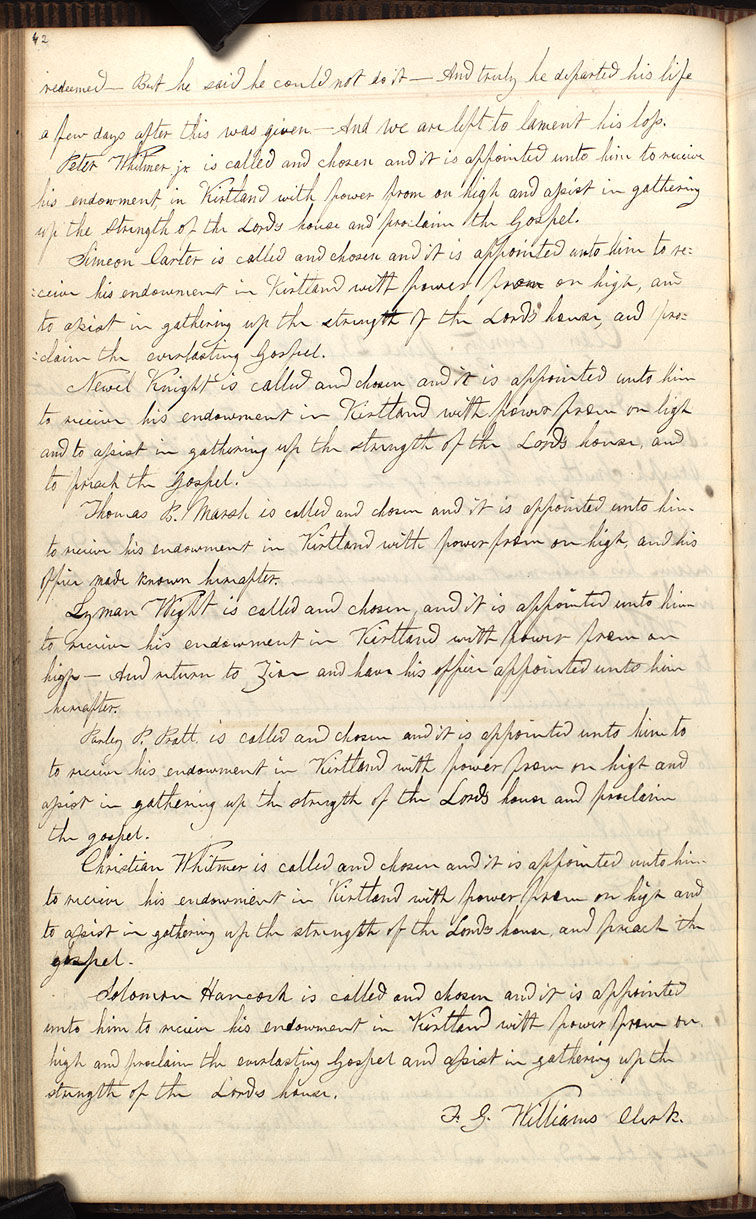 42
redeemed— But he said he could not do it— And truly he departed his life
a few days after this was given— And we are left to lament his loss.
Peter Whitmer jr. is called and chosen and it is appointed unto him to receive
his endowment in Kirtland with power from on high and assist in gathering
up the strength of the Lord's house and proclaim the Gospel.
Simeon Carter is called and chosen and it is appointed unto him to re:
:ceive his endowment in Kirtland with power from on high, and
to assist in gathering up the strength of the Lord's house, and pro:
:claim the everlasting Gospel.
Newel Knight is called and chosen and it is appointed unto him
to receive his endowment in Kirtland with power from on high
and to assist in gathering up the strength of the Lord's house, and
to preach the Gospel.
Thomas B. Marsh is called and chosen and it is appointed unto him
to receive his endowment in Kirtland with power from on high, and his
office made known hereafter.
Lyman Wight is called and chosen, and it is appointed unto him
to receive his endowment in Kirtland with power from on
high— And return to Zion and have his office appointed unto him
hereafter.
Parley P. Pratt. is called and chosen and it is appointed unto him to
to receive his endowment in Kirtland with power from on high and
assist in gathering up the strength of the Lord's house and proclaim
the gospel.
Christian Whitmer is called and chosen and it is appointed unto him
to receive his endowment in Kirtland with power from on high and
to assist in gathering up the strength of the Lord's house, and preach the
gospel.
Solomon Hancock is called and chosen and it is appointed
unto him to receive his endowment in Kirtland with power from on
high and proclaim the everlasting Gospel and assist in gathering up the
strength of the Lord's house.
F. G. Williams Clerk.